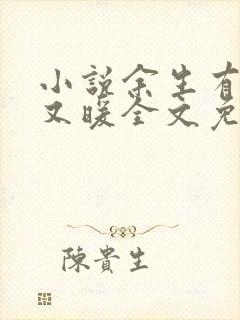 小说余生有
又暖全文免
陳貴生